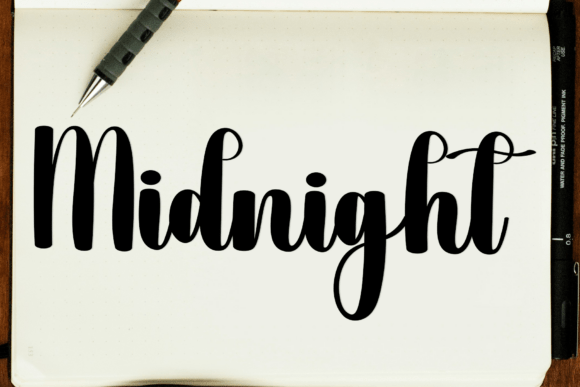 Midnight
WATER AND FADE PROOF, PIGMENT INK
0.8